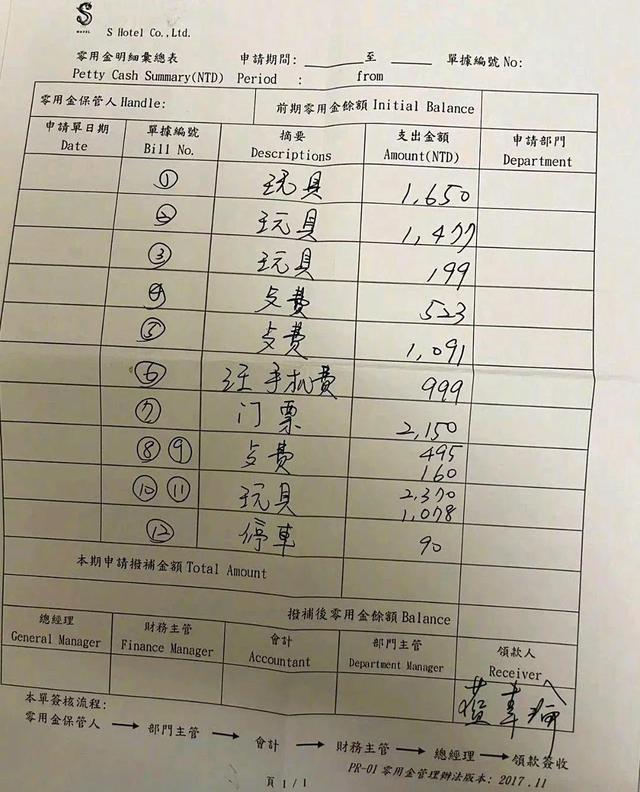 S
HOTEL
S Hotel Co.,Ltd.
零用金明細彙總表 申請期間: ______ 至 ______ 單據編號 No:
Petty Cash Summary(NTD) Period : from
零用金保管人 Handle: 前期零用金餘額 Initial Balance
申請單日期 單據編號 摘要 支出金額 申請部門
Date Bill No. Descriptions Amount(NTD) Department
① 玩具 1,650
② 玩具 1,477
③ 玩具 199
④ 歺費 523
⑤ 歺費 1,091
⑥ 汪手机費 999
⑦ 门票 2,150
⑧ ⑨ 歺費 495
160
⑩ ⑪ 玩具 2,370
1,078
⑫ 停車 90
本期申請撥補金額 Total Amount
撥補後零用金餘額 Balance
總經理 財務主管 會計 部門主管 領款人
General Manager Finance Manager Accountant Department Manager Receiver
本單簽核流程:
零用金保管人 → 部門主管 → 會計 → 財務主管 → 總經理 → 領款簽收
PR-01 零用金管理辦法版本: 2017.11
頁 1/1